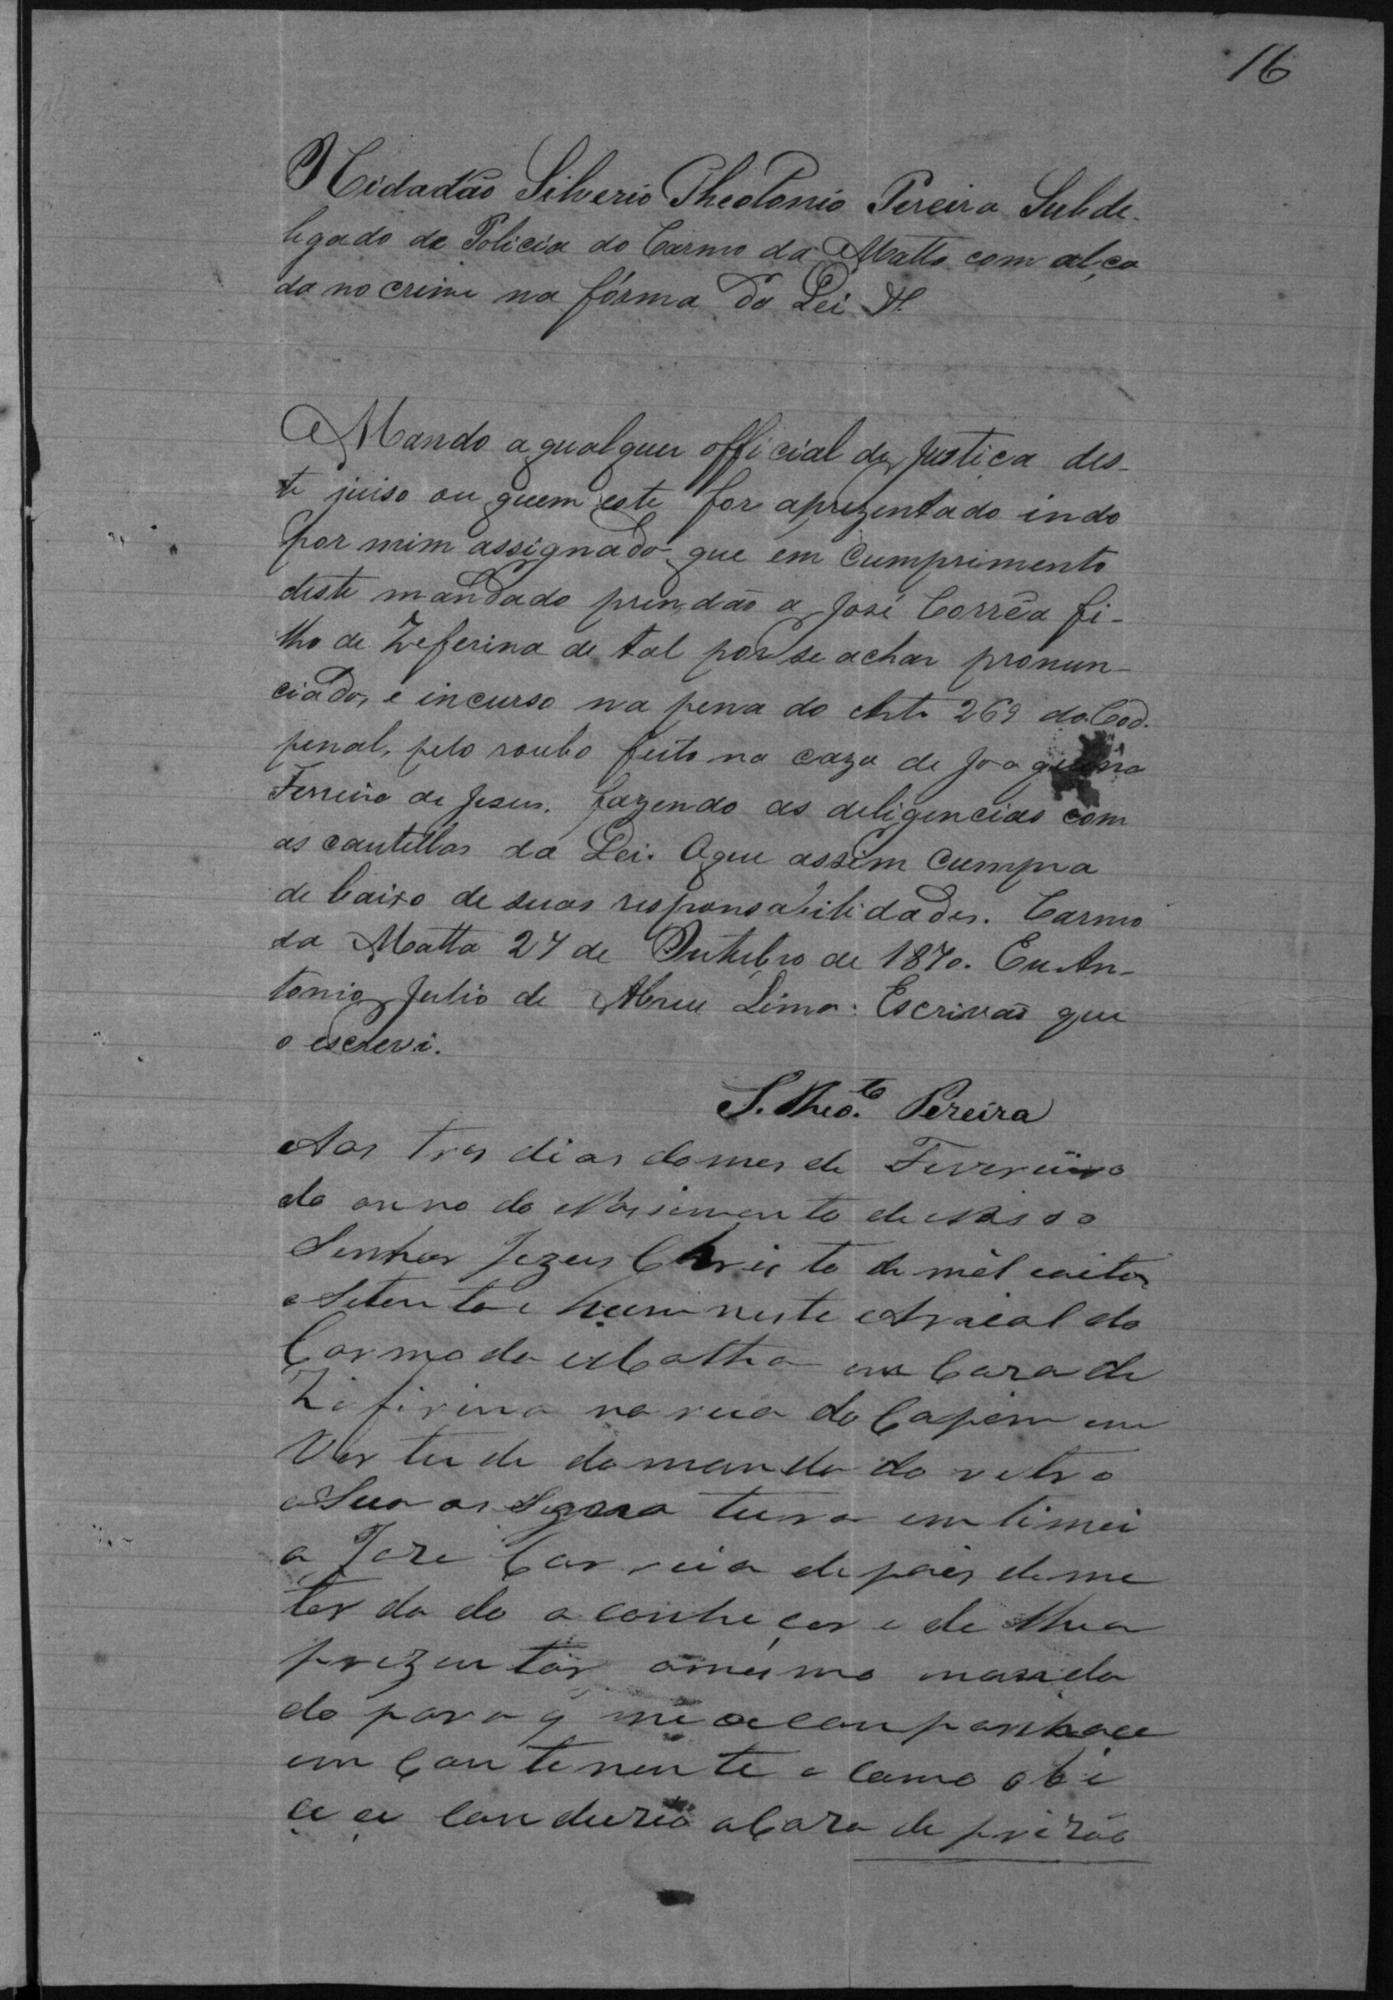 16
O Cidadão Silverio Theotonio Pereira Subde-
legado de Policia do Carmo da Matta com alça
da no crime na fórma da Lei &.
Mando a qualquer official de Justiça des-
te juiso ou quem este for aprezentado indo
por mim assignado que em cumprimento
deste mandado prendão a José Corrêa fi-
lho de Zeferina de tal por se achar pronun-
ciado, e incurso na pena do Art. 269 do Cod.
penal, pelo roubo feito na caza de Joaquina
Ferreira de Jesus. fazendo as deligencias com
as cautellas da Lei. O que assim cumpra
de baixo de suas responsabilidades. Carmo
da Matta 27 de Outubro de 1870. Eu An-
tonio Julio de Abreu Lima: Escrivão que
o escrevi.
S. Theo.to Pereira
Aos tres dias do mes de Fevereiro
do anno do Nascimento de Nosso
Senhor Jezus Christo de mil coito
e Setenta e hum neste Arraial do
Carmo da Matta em Caza de
Zifirina na rua do Capim em
Vertude do mandado retro
e Sua as Signa tura em timei
a Jose Correia depois de me
ter dado a conhecer e de lhe a
prezentar o mesmo manda
do para q me a companhace
em Contenente e como obi
cece conduzio a Caza de prizão